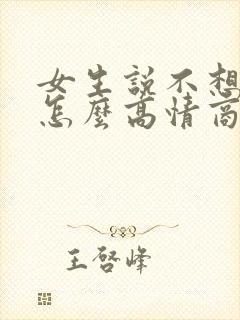 女生説不想
怎麽高情商
王啓峰